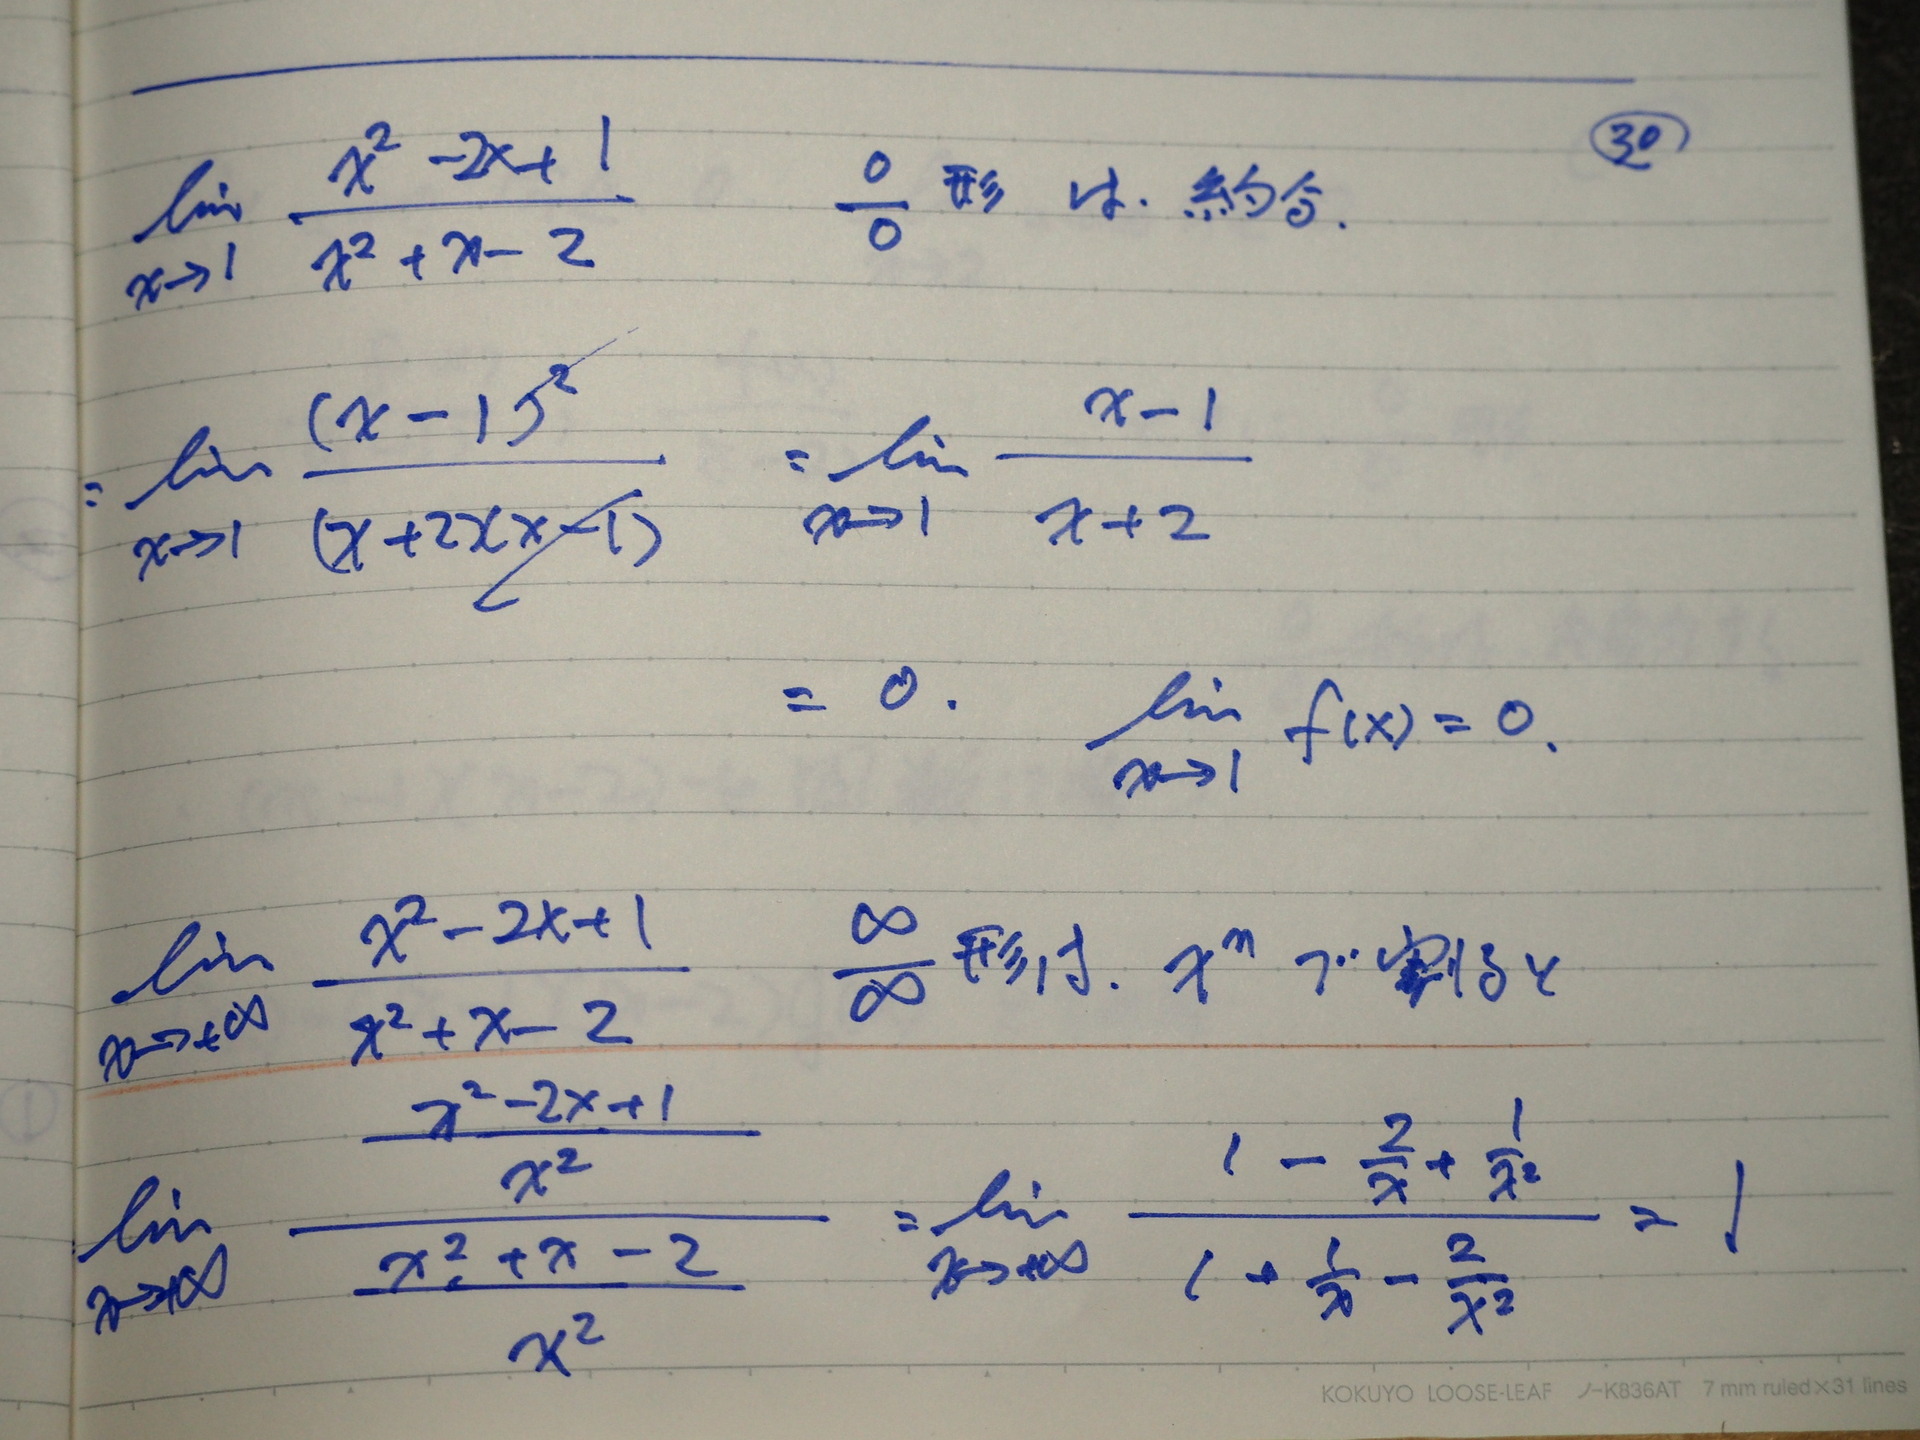 30
lim x→1 (x² -2x+1)/(x²+x-2) 0/0 形は. 約分.
= lim x→1 (x-1)²/(x+2)(x-1) = lim x→1 (x-1)/(x+2)
= 0. lim x→1 f(x) = 0.
lim x→+∞ (x²-2x+1)/(x²+x-2) ∞/∞ 形は. xⁿ で割ると
lim x→+∞ ((x²-2x+1)/x²)/((x²+x-2)/x²) = lim x→+∞ (1 - 2/x + 1/x²)/(1 + 1/x - 2/x²) = 1
KOKUYO LOOSE-LEAF ノ-K836AT 7 mm ruled×31 lines